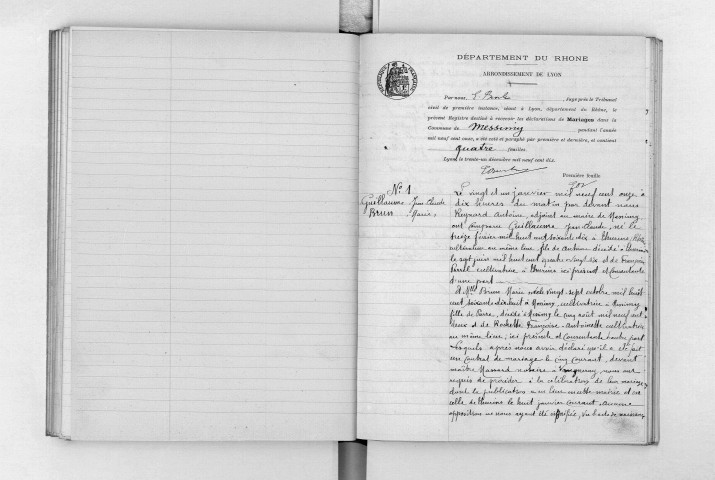 DÉPARTEMENT DU RHONE
ARRONDISSEMENT DE LYON
Par nous, Juge près le Tribunal
civil de première instance, séant à Lyon, département du Rhône, le
présent Registre destiné à recevoir les déclarations de Mariages dans la
Commune de Messimy pendant l'année
mil neuf cent onze, a été coté et paraphé par première et dernière, et contient
quatre feuilles.
Lyon, le trente-un décembre mil neuf cent dix.
Première feuille
N° 1
Guillaume Jean Claude
Brun Marie
Le vingt et un janvier mil neuf cent onze à
dix heures du matin par devant nous
Reynard Antoine, adjoint au maire de Messimy
ont comparu Guillaume Jean Claude, né le
treize février mil huit cent soixante dix à Thurins, Rhône
cultivateur au même lieu fils de Antoine décédé à Thurins
le sept juin mil huit cent quatre vingt dix et de Françoise
cultivatrice à Thurins ici présent et consentante
d'une part
Et Mlle Brun Marie née le vingt sept octobre mil huit
cent soixante dix huit à Messimy, cultivatrice à Messimy
fille de Pierre, décédé à Messimy le cinq août mil neuf cent
deux et de Rochette Françoise Antoinette cultivatrice
au même lieu; ici présente et consentante d'autre part
Lesquels après nous avoir déclaré qu'il a été fait
un contrat de mariage le cinq courant, devant
maître notaire à Vaugneray, nous ont
requis de procéder à la célébration de leur mariage
dont la publication a eu lieu en cette mairie et en
celle de Thurins le huit janvier courant. Aucune
opposition ne nous ayant été signifiée, Vu l'acte de naissance